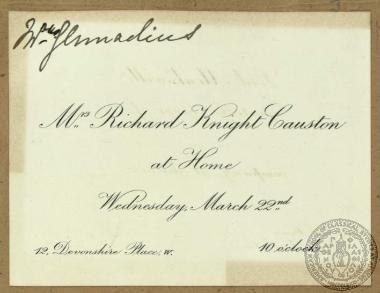 Mrs Richard Knight Causton
at Home
Wednesday, March 22nd
12, Devonshire Place, W.
10 o'clock